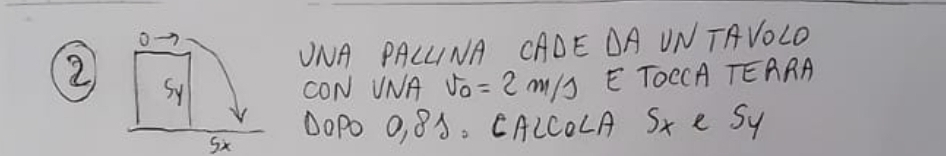 2
UNA PALLINA CADE DA UN TAVOLO
CON UNA v₀ = 2 m/s E TOCCA TERRA
DOPO 0,8 s. CALCOLA Sx e Sy
Sy
Sx